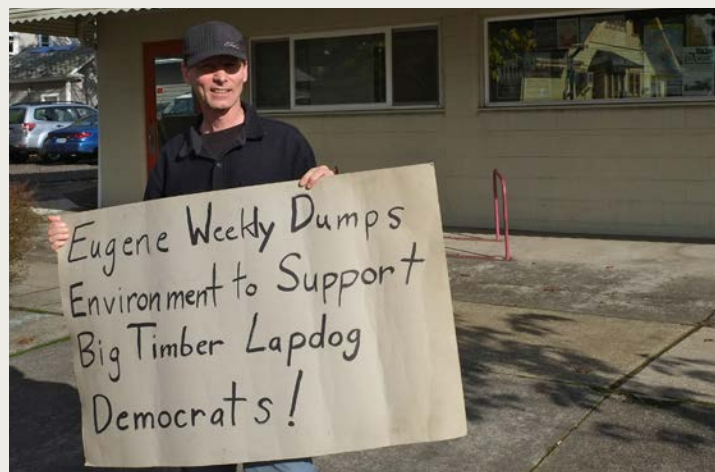 Eugene Weekly Dumps
Environment to Support
Big Timber Lapdog
Democrats!